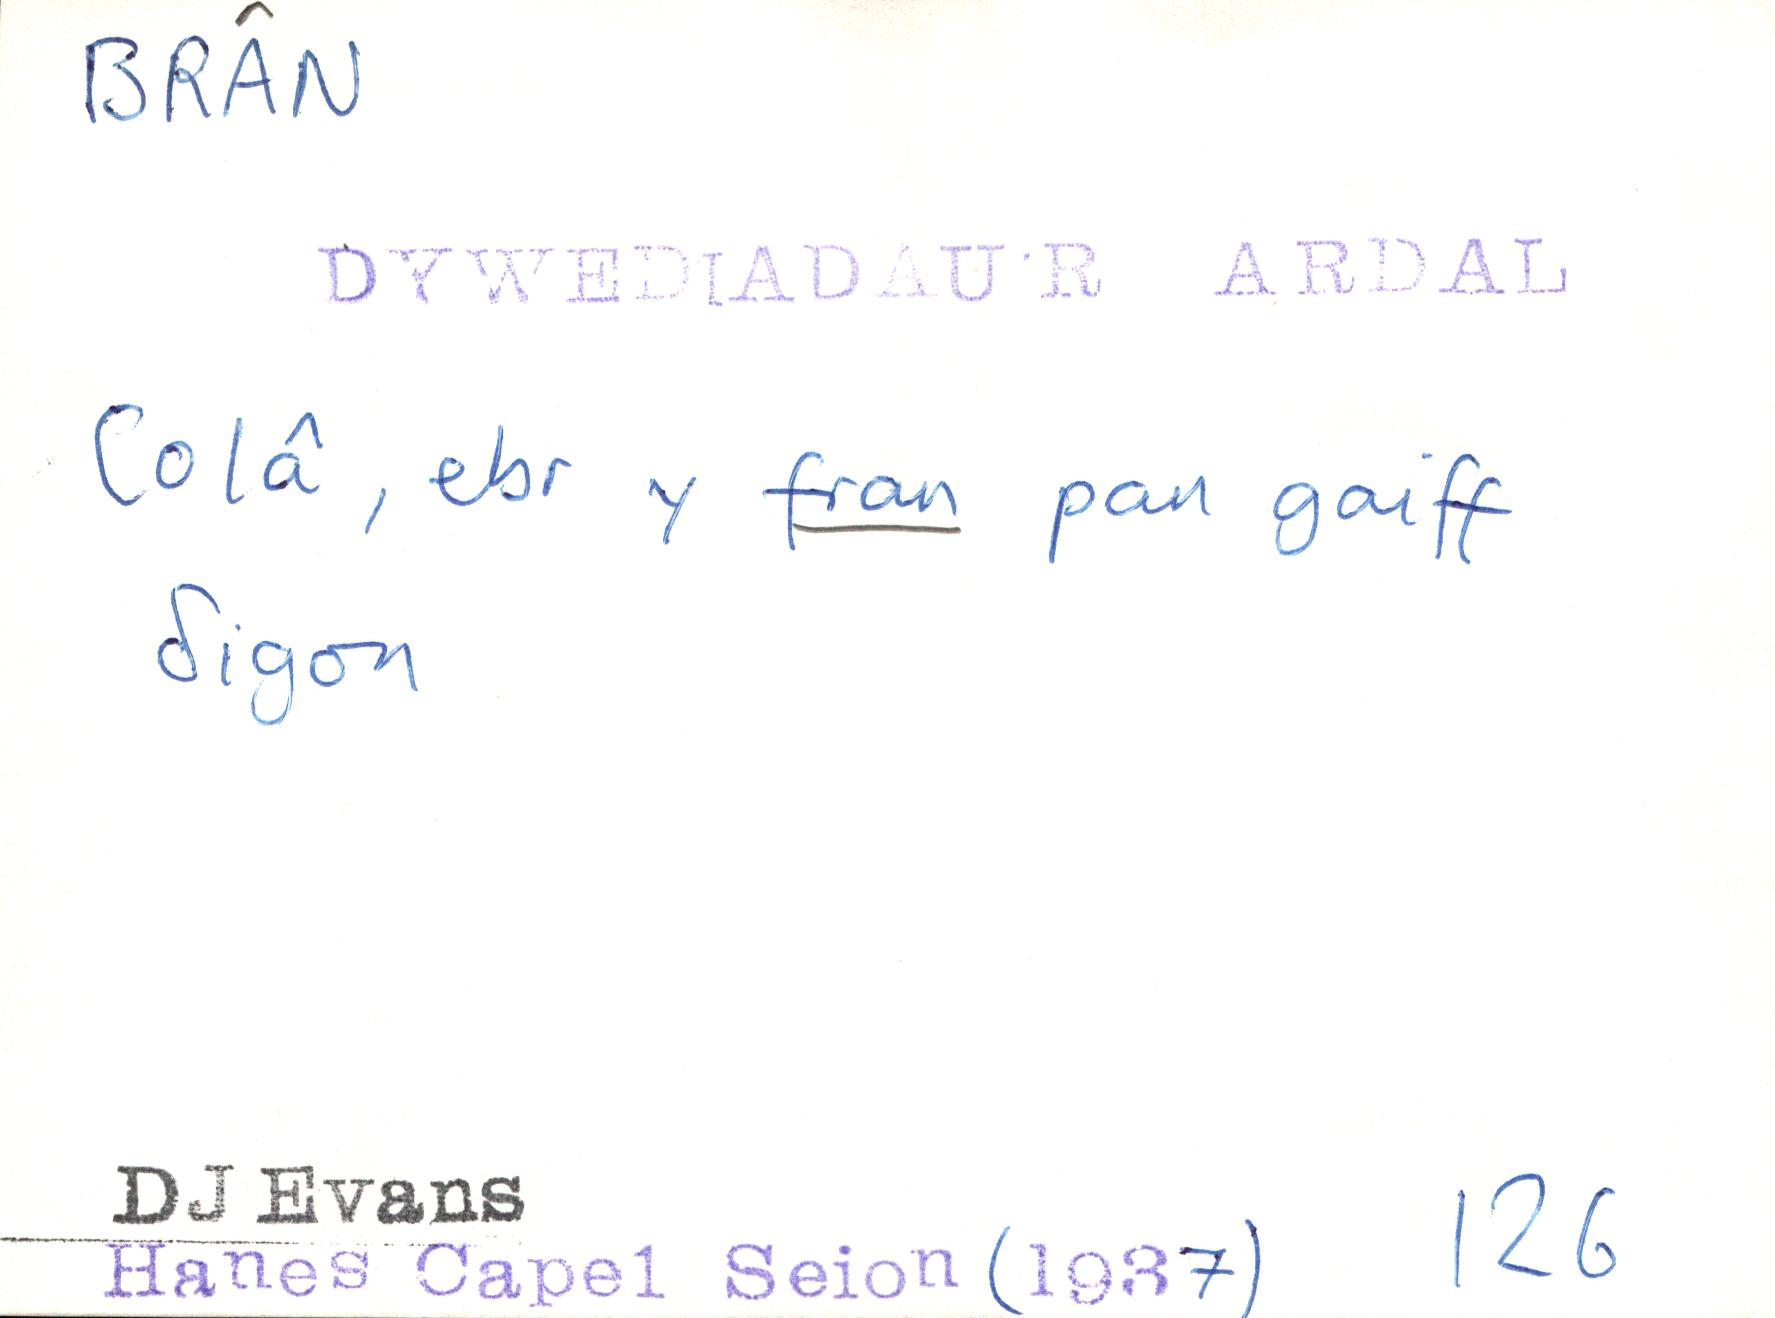 BRÂN
DYWEDIADAU'R ARDAL
Colâ, ebr y fran pan gaiff
digon
DJ Evans
Hanes Capel Seion (1937) 126